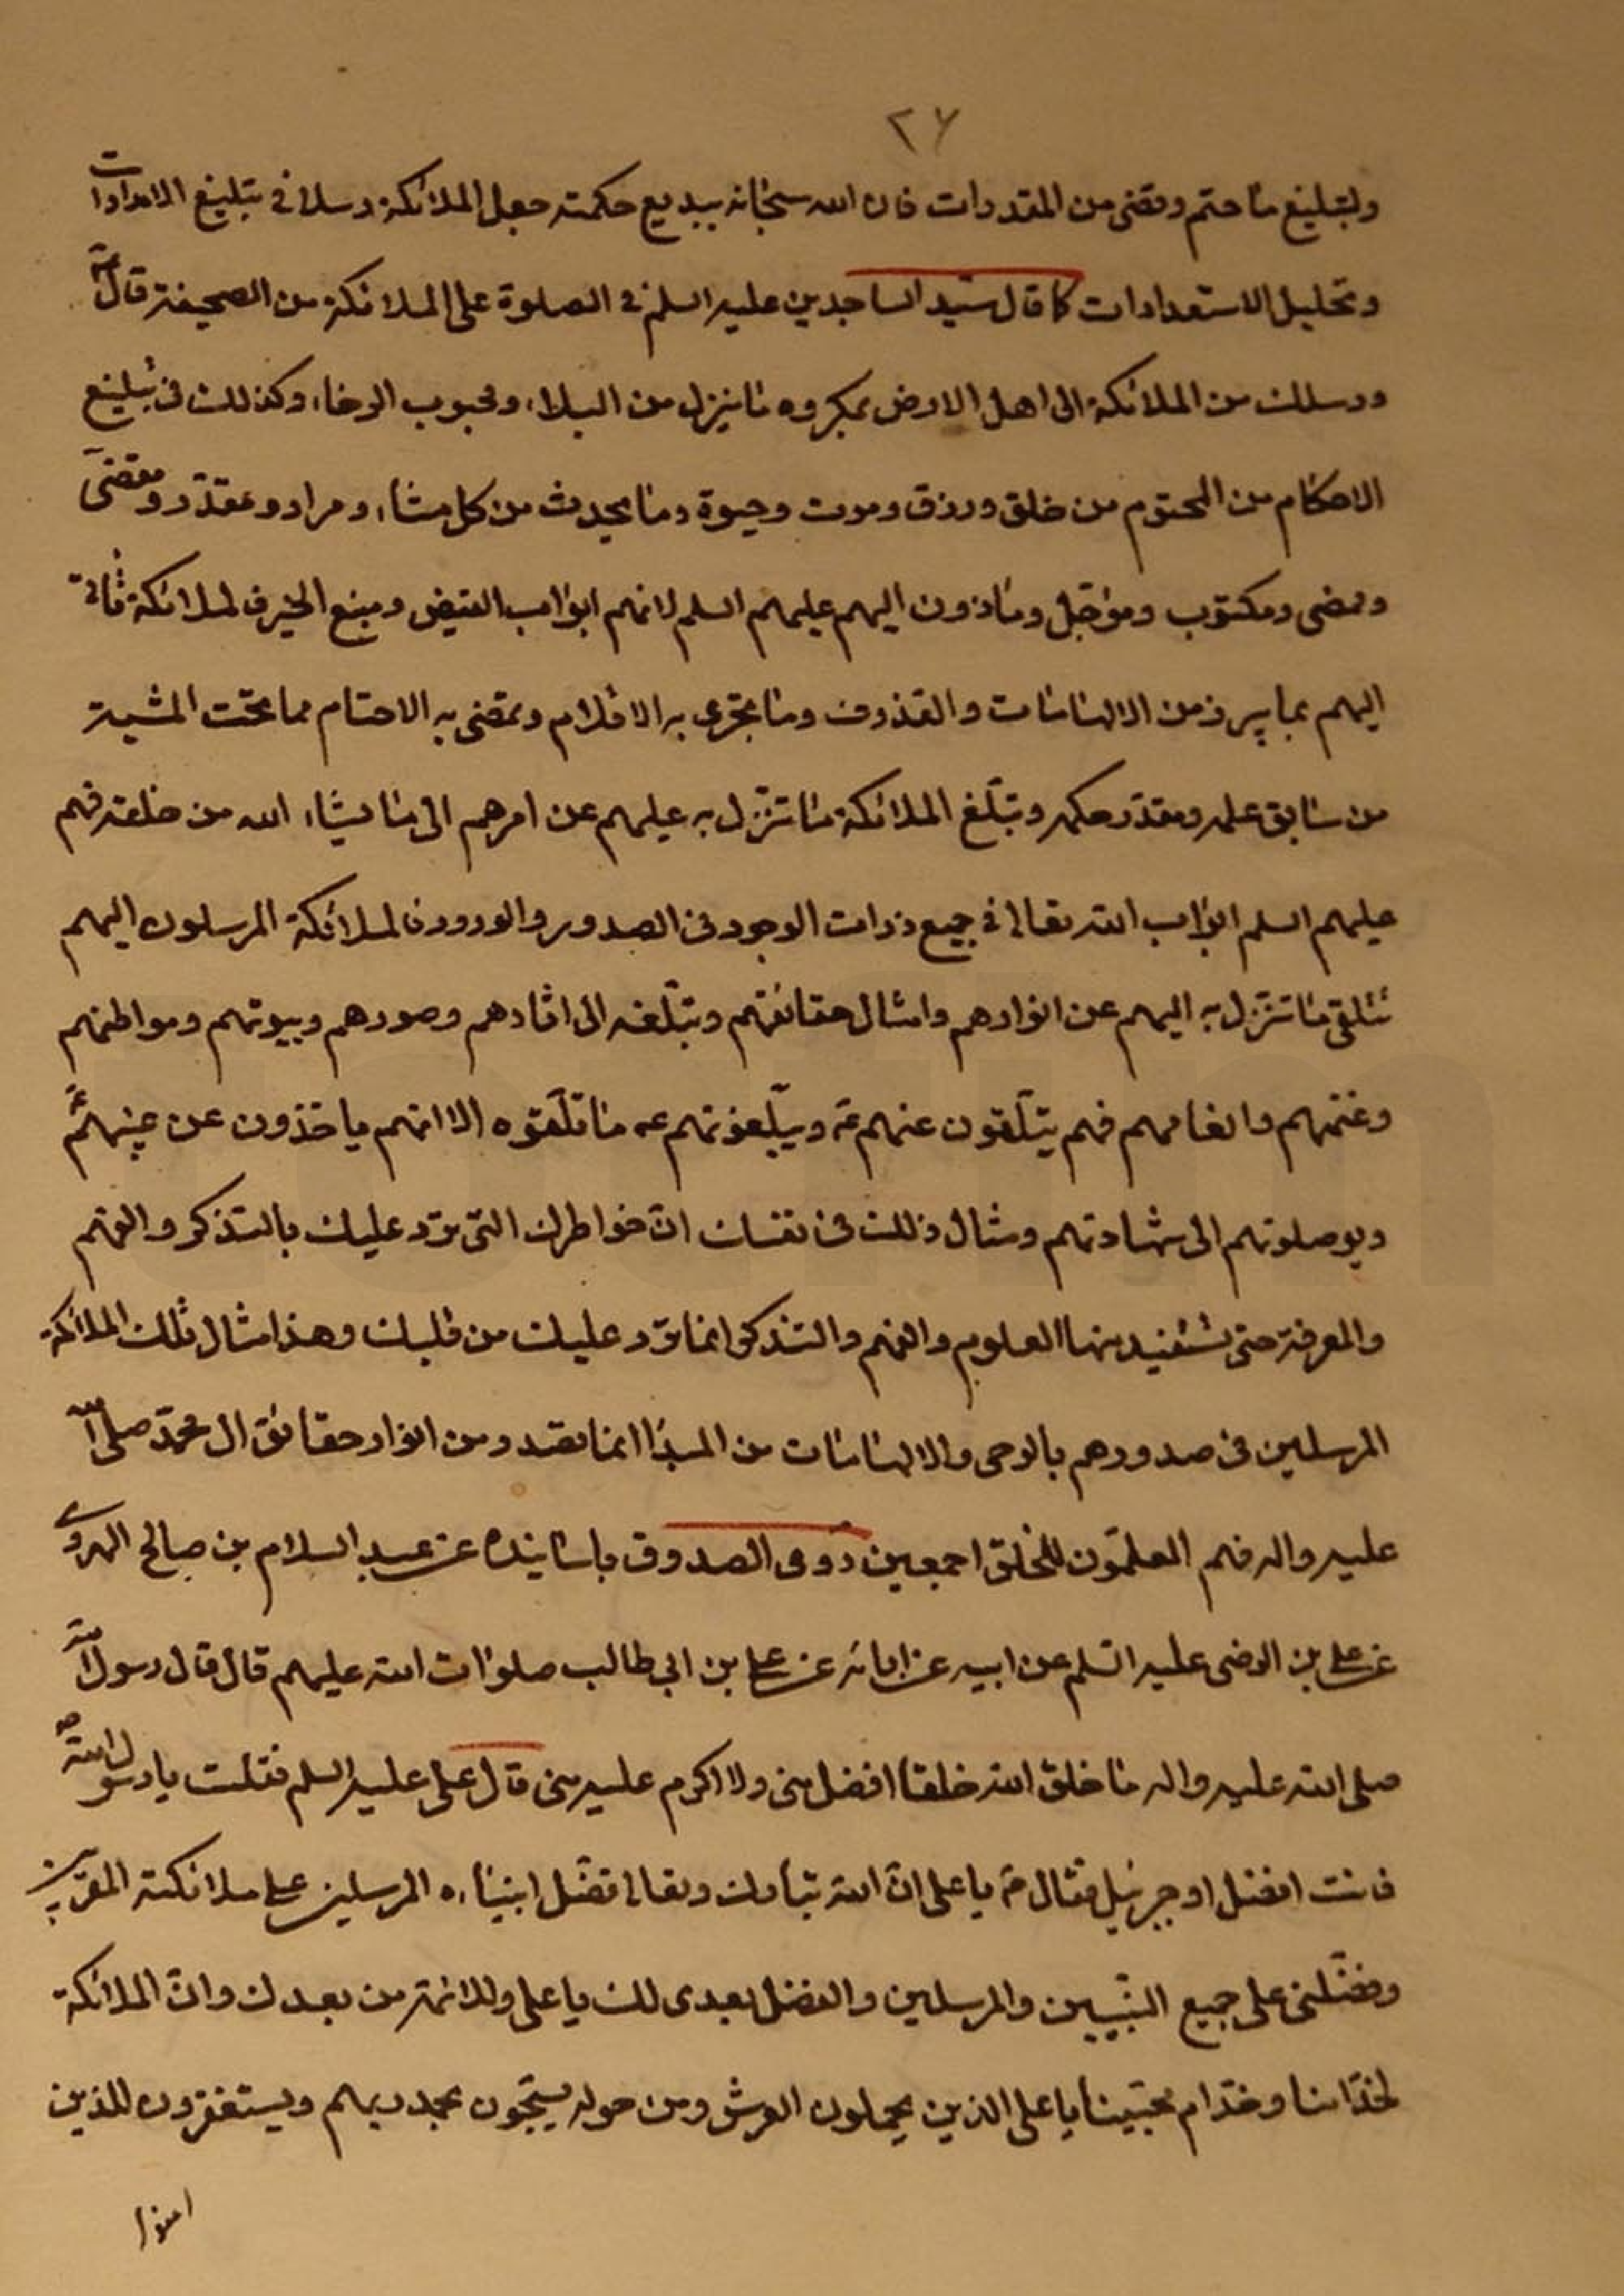 ٢٦
ولتبليغ ما حتم وقضى من المقدرات فان الله سبحانه ببديع حكمته جعل الملائكة رسلا في تبليغ الامدادات
وتحليل الاستعدادات كما قال سيد الساجدين عليه السلم في الصلوة على الملائكة من الصحيفة قال
ورسلك من الملائكة الى اهل الارض بمكروه ما ينزل من البلاء ومحبوب الرخاء وكذلك في تبليغ
الاحكام من المحتوم من خلق ورزق وموت وحيوة وما يحدث من كل مشاء ومراد ومقدر ومقضى
وممضى ومكتوب ومؤجل وماذون اليهم عليهم السلم لانهم ابواب الفيض ومنبع الخير فالملائكة تاتى
اليهم بما يبرز من الالهامات والقذوف وما يجرى به الاقلام وتمضى به الاحتام مما تحت المشية
من سابق علمه ومقدر حكمه وتبلغ الملائكة ما تنزل به عليهم عن امرهم الى ما يشاء الله من خلقه فهم
عليهم السلم ابواب الله تعالى في جميع ذرات الوجود في الصدور والورود فالملائكة المرسلون اليهم
تتلقى ما تنزل به اليهم عن انوارهم وامثال حقائقهم وتبلغه الى اثارهم وصورهم وبيوتهم ومواطنهم
وغنمهم وانعامهم فهم يتلقون عنهم ع ويبلغونهم عه ما تلقوه الا انهم ياخذون عن غيبهم ع
ويوصلونهم الى شهادتهم ومثال ذلك في نفسك ان خواطرك التى ترد عليك بالتذكر والفهم
والمعرفة حتى تستفيد منها العلوم والفهم والتذكر انما ترد عليك من قلبك وهذا مثال تلك الملائكة
المرسلين في صدورهم بالوحى والالهامات من المبدأ انما تصدر من انوار حقائق ال محمد صلى الله
عليه واله فهم المعلمون للخلق اجمعين روى الصدوق باسانيده عن عبد السلام بن صالح الهروى
عن على بن الرضى عليه السلم عن ابيه عن ابائه عن على بن ابى طالب صلوات الله عليهم قال قال رسول الله
صلى الله عليه واله ما خلق الله خلقا افضل منى ولا اكرم عليه منى قال على عليه السلم فقلت يا رسول الله ص
فانت افضل او جبرئيل فقال ص يا على ان الله تبارك وتعالى فضل انبياءه المرسلين على ملائكته المقربين
وفضلنى على جميع النبيين والمرسلين والفضل بعدى لك يا على وللائمة من بعدك وان الملائكة
لخدامنا وخدام محبينا يا على الذين يحملون العرش ومن حوله يسبحون بحمد ربهم ويستغفرون للذين
امنوا